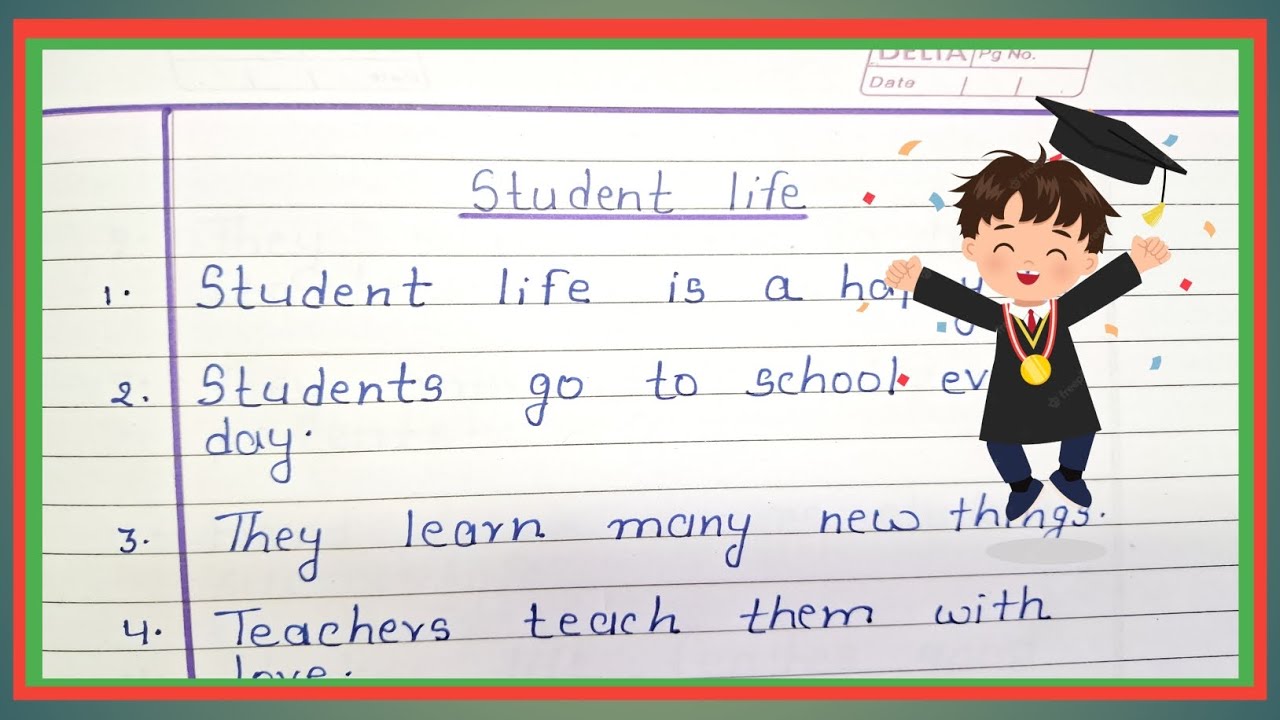 DELTA Pg No.
Date
Student life
1. Student life is a happy
2. Students go to school
day.
3. They learn many new things.
4. Teachers teach them with
love.